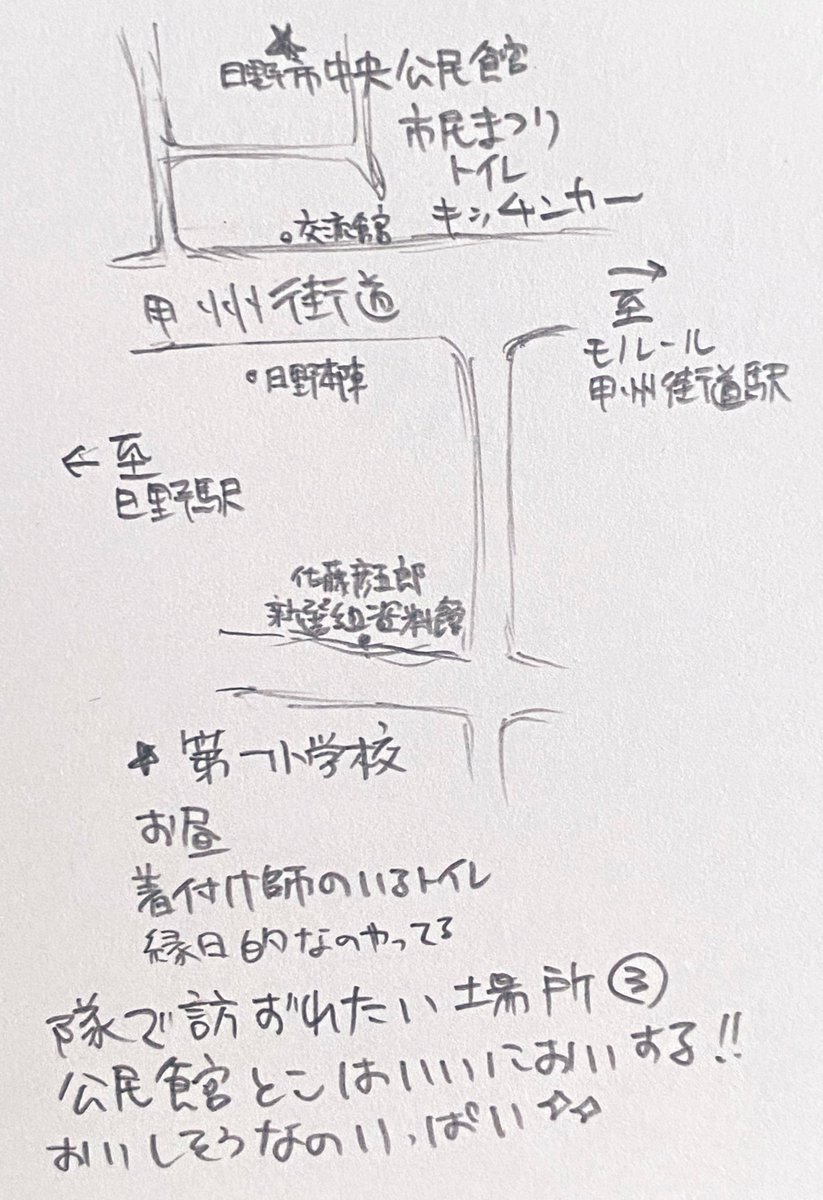 ★
日野市中央公民館
市民まつり
トイレ
キッチンカー
交流館
甲州街道
→
至
モノレール
甲州街道駅
日野本陣
← 至
日野駅
佐藤彦五郎
新選組資料館
★ 第一小学校
お昼
着付け師のいるトイレ
縁日的なのやってる
隊で訪ずれたい場所③
公民館とこはいいにおいする!!
おいしそうなのいっぱい✧✧